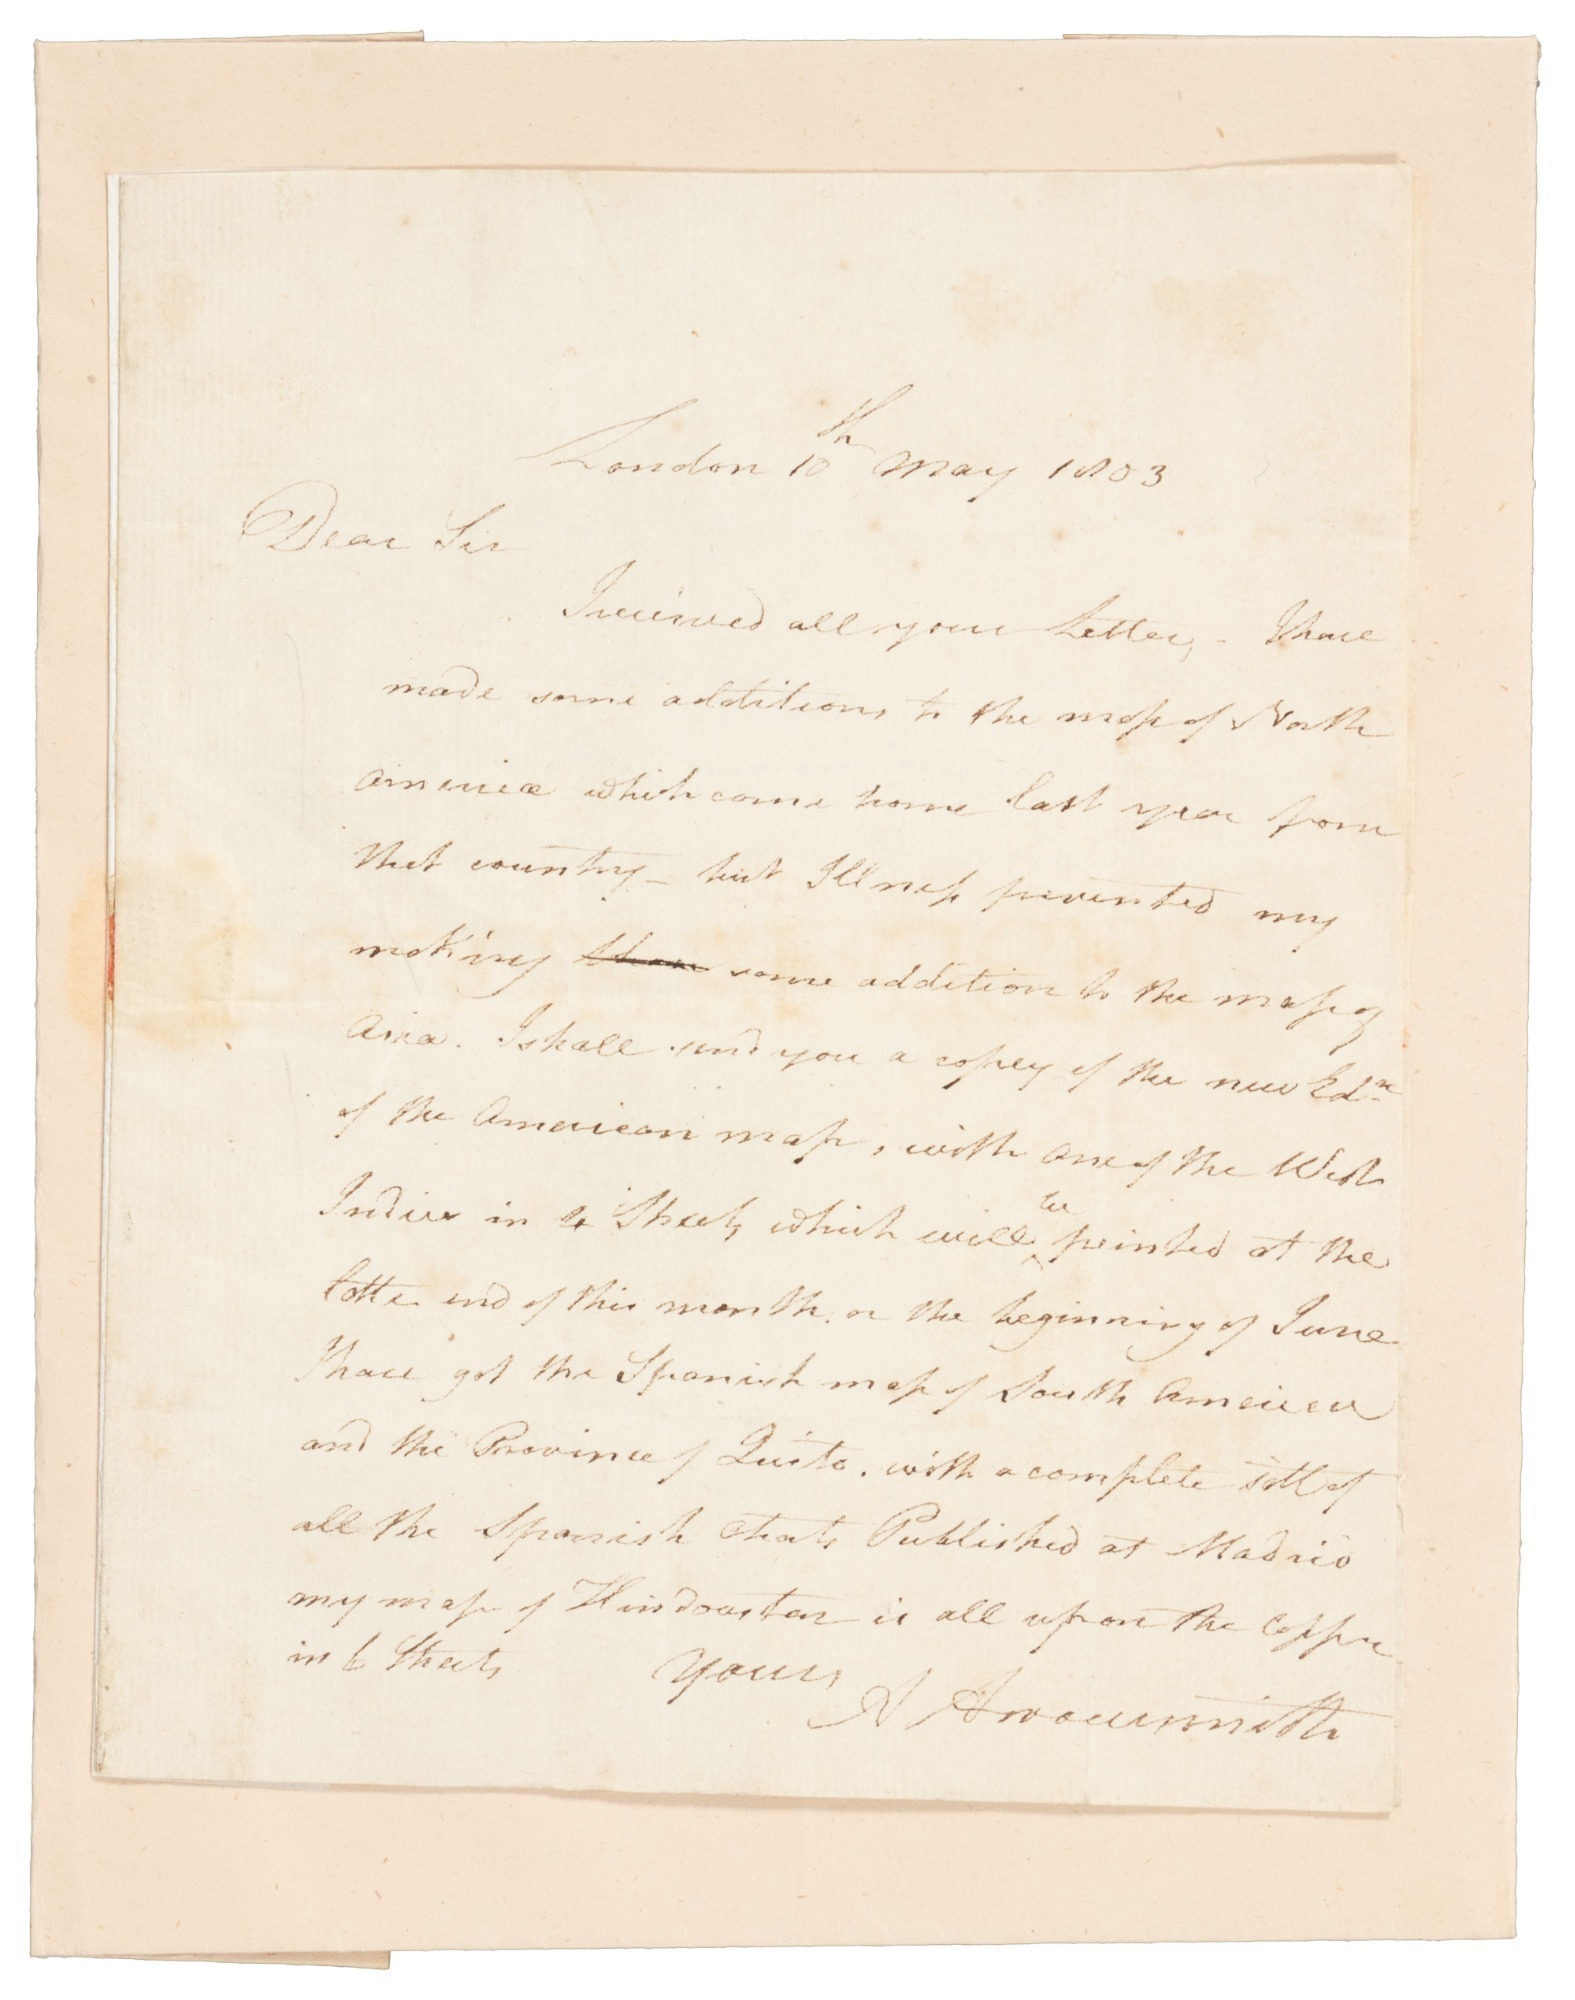 London 10th May 1803
Dear Sir
I received all your Letters - I have
made some additions to the map of North
America which came home last year from
that country - but Illness prevented my
making some addition to the map of
Asia. I shall send you a copey of the new Edn
of the American map, with one of the West
Indies in 4 Sheets which will be printed at the
latte end of this month. or the beginning of June
I have got the Spanish map of South America
and the Province of Quito. with a complete sett of
all the Spanish Charts Published at Madrid
my map of Hindoostan is all upon the Copper
in 6 Sheets Yours
A Arrowsmith